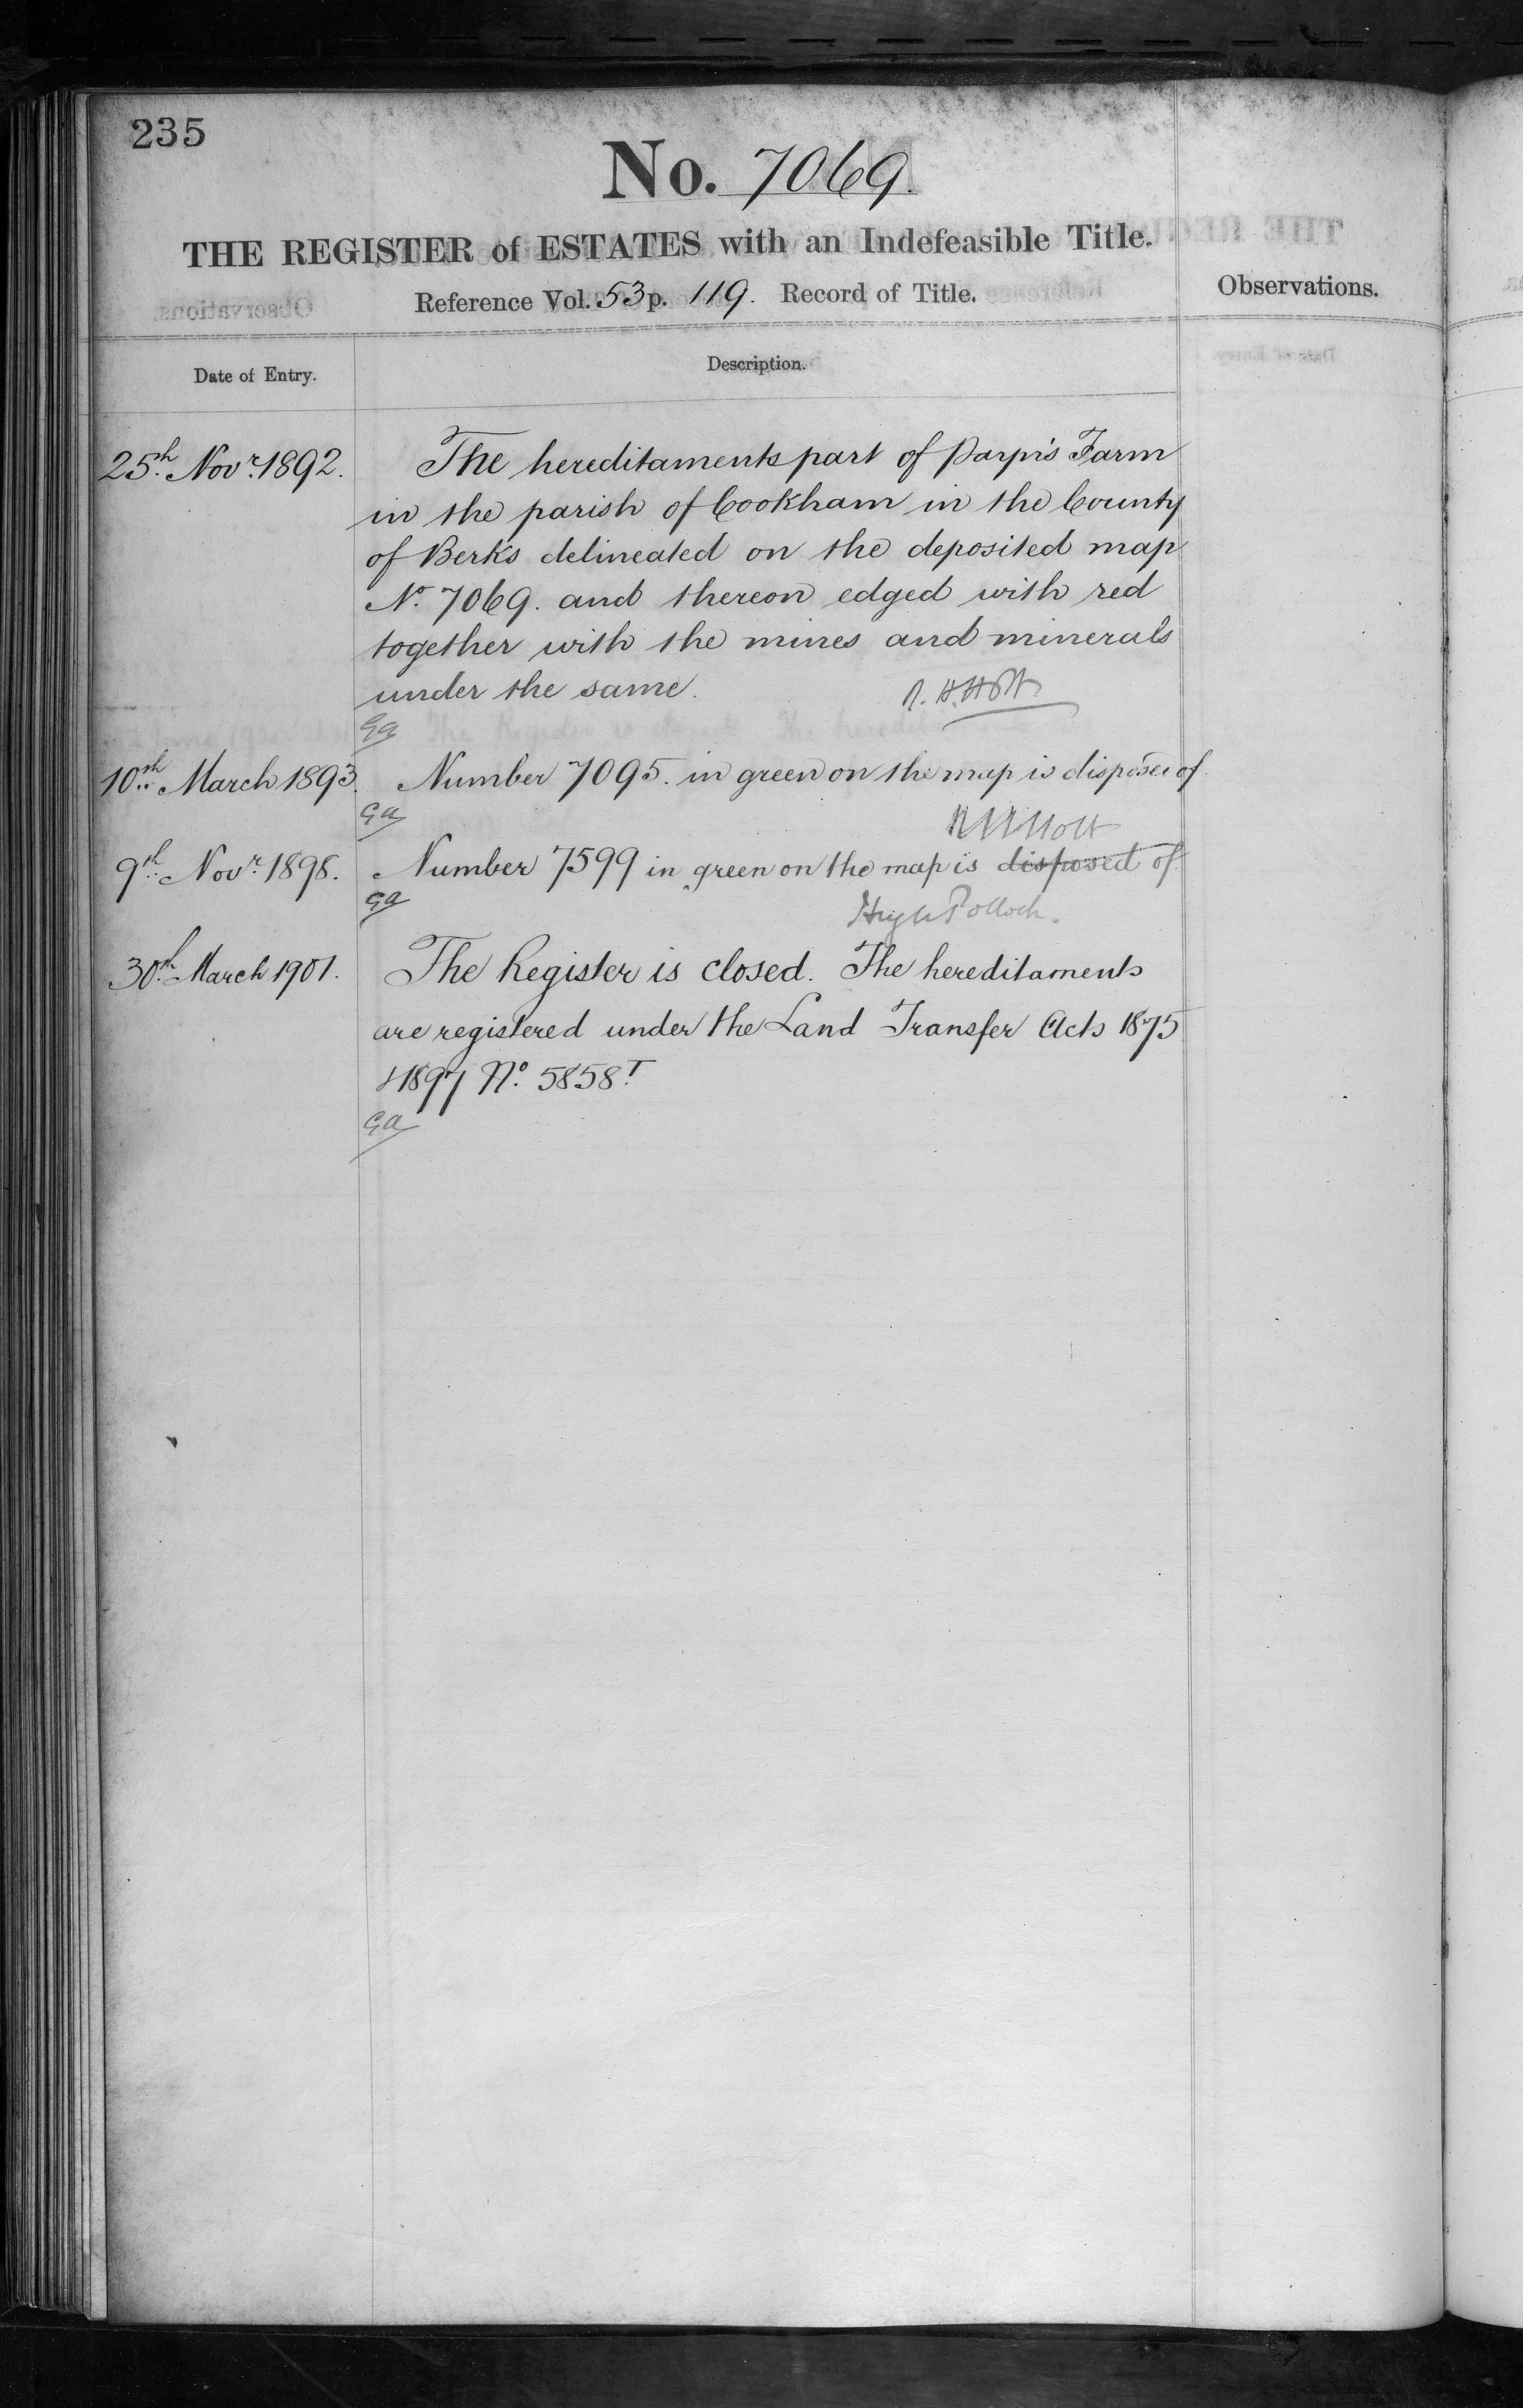 235
No. 7069.
THE REGISTER of ESTATES with an Indefeasible Title.
Reference Vol. 53 p. 119. Record of Title.
Observations.
Date of Entry.
Description.
25th Novr. 1892.
The hereditaments part of Farm
in the parish of Cookham in the County
of Berks delineated on the deposited map
No. 7069. and thereon edged with red
together with the mines and minerals
under the same.
R. H. Holt
Ga
10th March 1893.
Number 7095. in green on the map is disposed of.
Ga
R H Holt
9th Novr. 1898.
Number 7599 in green on the map is disposed of
Ga
Hugh Pollock.
30th March 1901.
The Register is closed. The hereditaments
are registered under the Land Transfer Acts 1875
& 1897 No. 5858T
Ga